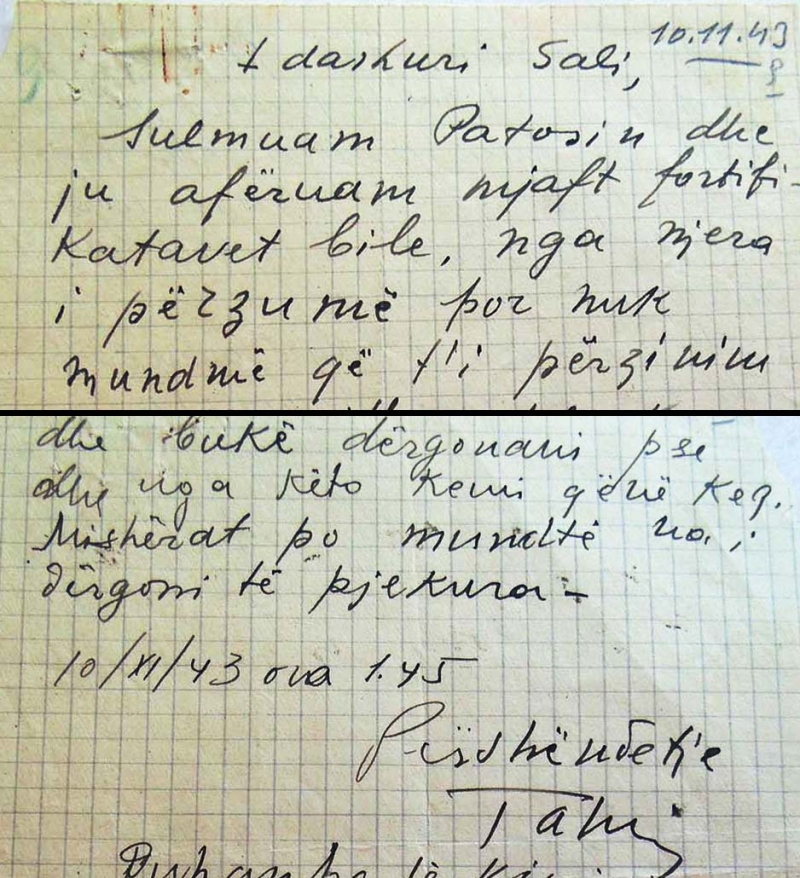 10.11.43
I dashuri Sali,
Sulmuam Patosin dhe
ju afëruam mjaft fortifi-
katavet bile, nga njera
i përzumë por nuk
mundmë që t'i përzinim
dhe bukë dërgonani pse
dhe nga këto kemi qënë keq.
Mishërat po mundtë na i
dërgoni të pjekura -
10/XI/43 ora 1.45
Përshëndetje
Tahi
Duhanhe të